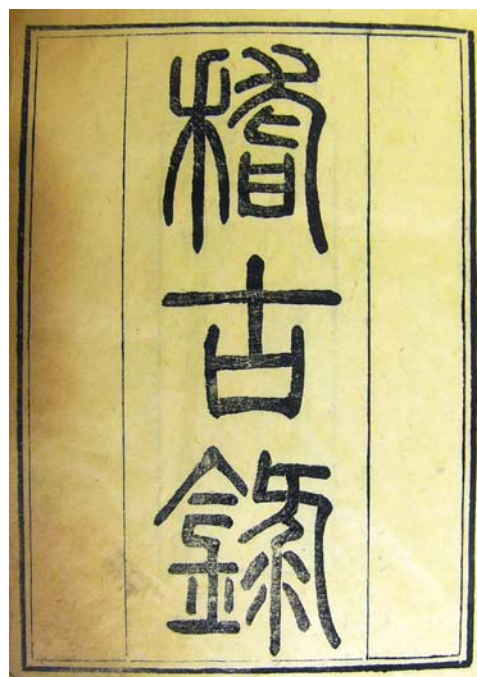 稽古錄